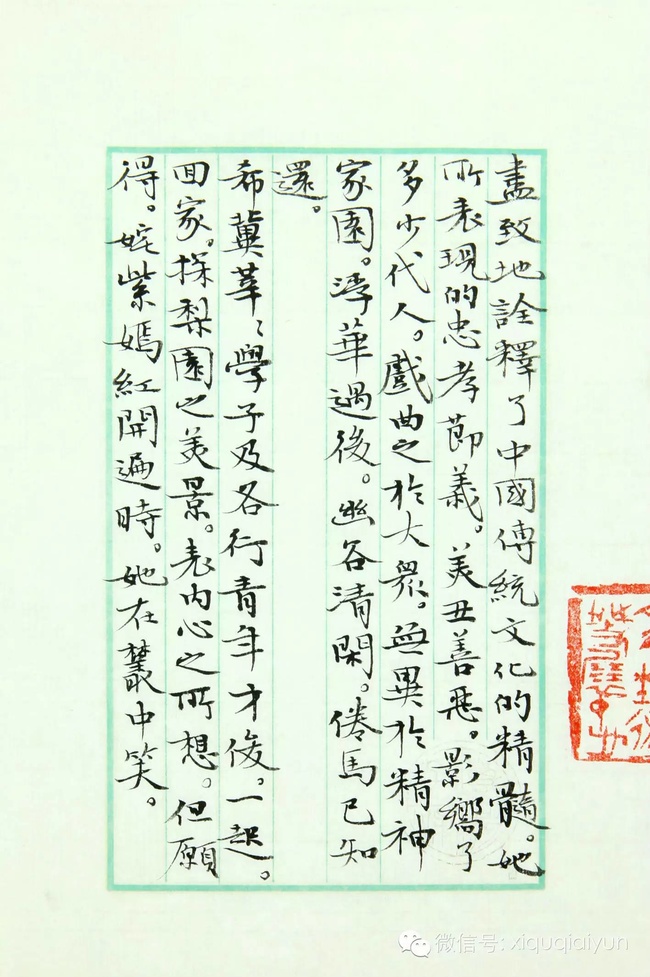 盡致地詮釋了中國傳統文化的精髓。她
所表現的忠孝節義。美丑善惡。影響了
多少代人。戲曲之於大眾。無異於精神
家園。浮華過後。幽谷清閑。倦馬已知
還。
希冀莘〻學子及各行青年才俊。一起。
回家。探梨園之美景。表內心之所想。但願
得。姹紫嫣紅開遍時。她在叢中笑。
微信号: xiquqiaiyun